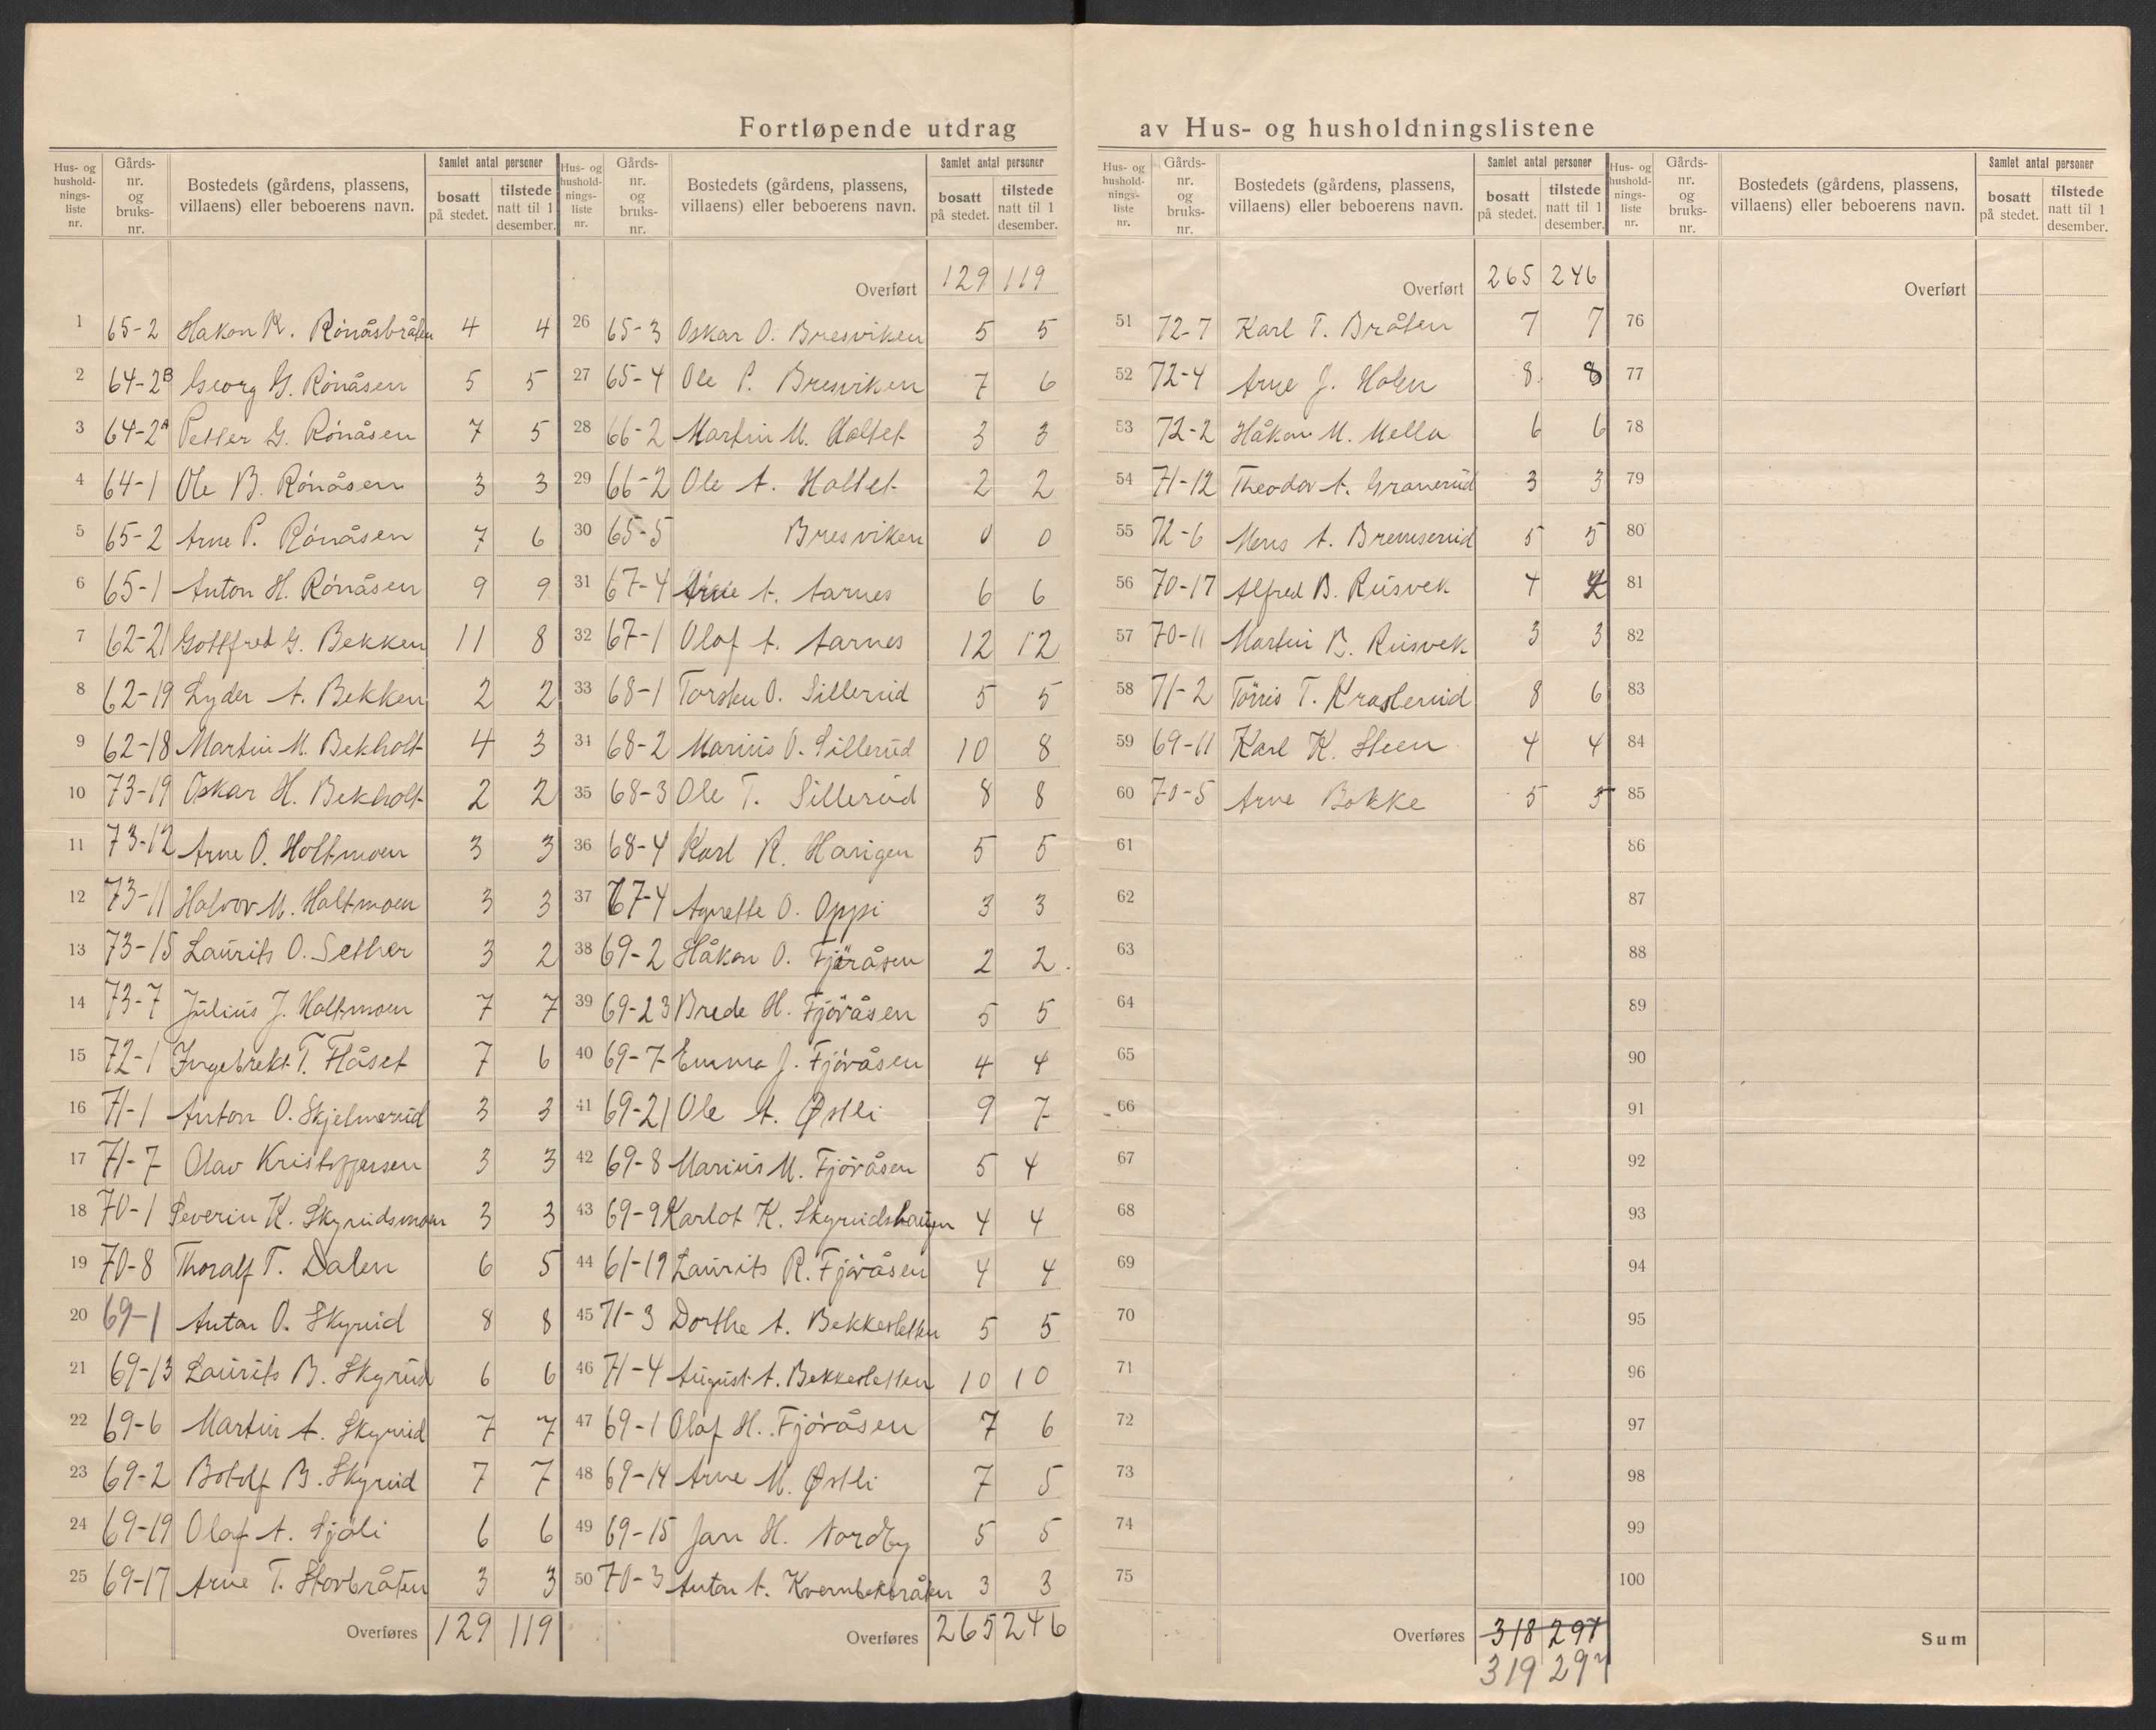 Fortløpende utdrag av Hus- og husholdningslistene
Hus- og husholdnings-liste nr. Gårds-nr. og bruks-nr. Bostedets (gårdens, plassens, villaens) eller beboerens navn. Samlet antal personer bosatt på stedet. tilstede natt til 1 desember.
1 65-2 Hakon K. Rönåsbråten 4 4
2 64-2B Georg G. Rönåsen 5 5
3 64-2A Petter G. Rönåsen 7 5
4 64-1 Ole B. Rönåsen 3 3
5 65-2 Arne P. Rönåsen 7 6
6 65-1 Anton H. Rönåsen 9 9
7 62-21 Gottfred G. Bekken 11 8
8 62-19 Lyder A. Bekken 2 2
9 62-18 Martin M. Bekholt 4 3
10 73-19 Oskar H. Bekholt 2 2
11 73-12 Arne O. Holtmoen 3 3
12 73-11 Halvor M. Holtmoen 3 3
13 73-15 Laurits O. Sether 3 2
14 73-7 Julius J. Holtmoen 7 7
15 72-1 Ingebrekt T. Flåset 7 6
16 71-1 Anton O. Skjelmerud 3 3
17 71-7 Olav Kristoffersen 3 3
18 70-1 Severin K. Skyrudsmoen 3 3
19 70-8 Thoralf T. Dalen 6 5
20 69-1 Anton O. Skyrud 8 8
21 69-13 Laurits B. Skyrud 6 6
22 69-6 Martin A. Skyrud 7 7
23 69-2 Botolf B. Skyrud 7 7
24 69-19 Olaf A. Sjöli 6 6
25 69-17 Arne T. Storbråten 3 3
Overføres 129 119
Hus- og husholdnings-liste nr. Gårds-nr. og bruks-nr. Bostedets (gårdens, plassens, villaens) eller beboerens navn. Samlet antal personer bosatt på stedet. tilstede natt til 1 desember.
Overført 129 119
26 65-3 Oskar O. Bresviken 5 5
27 65-4 Ole P. Bresviken 7 6
28 66-2 Martin M. Holtet 3 3
29 66-2 Ole A. Holtet 2 2
30 65-5 Bresviken 0 0
31 67-4 Arne A. Aarnes 6 6
32 67-1 Olaf A. Aarnes 12 12
33 68-1 Torsten O. Sillerud 5 5
34 68-2 Marius O. Sillerud 10 8
35 68-3 Ole T. Sillerud 8 8
36 68-4 Karl R. Harigen 5 5
37 67-4 Agnette O. Oppi 3 3
38 69-2 Håkon O. Fjöråsen 2 2
39 69-23 Brede H. Fjöråsen 5 5
40 69-7 Emma J. Fjöråsen 4 4
41 69-21 Ole A. Østli 9 7
42 69-8 Marius M. Fjöråsen 5 4
43 69-9 Karlot K. Skyrudshaugen 4 4
44 61-19 Laurits R. Fjöråsen 4 4
45 71-3 Dorthe A. Bekkesletten 5 5
46 71-4 August A. Bekkesletten 10 10
47 69-1 Olaf H. Fjöråsen 7 6
48 69-14 Arne M. Østli 7 5
49 69-15 Jan H. Nordby 5 5
50 70-3 Anton A. Kvernbekbråten 3 3
Overføres 265 246
Hus- og husholdnings-liste nr. Gårds-nr. og bruks-nr. Bostedets (gårdens, plassens, villaens) eller beboerens navn. Samlet antal personer bosatt på stedet. tilstede natt til 1 desember.
Overført 265 246
51 72-7 Karl T. Bråten 7 7
52 72-4 Arne J. Holen 8 8
53 72-2 Håkon M. Mella 6 6
54 71-12 Theodor A. Granerud 3 3
55 72-6 Mons A. Bremserud 5 5
56 70-17 Alfred B. Rusvek 4
57 70-11 Martin B. Rusvek 3 3
58 71-2 Törris T. Krasterud 8 6
59 69-11 Karl K. Steen 4 4
60 70-5 Arve Bokke 5 5
61
62
63
64
65
66
67
68
69
70
71
72
73
74
75
Overføres 318 297
319
Hus- og husholdnings-liste nr. Gårds-nr. og bruks-nr. Bostedets (gårdens, plassens, villaens) eller beboerens navn. Samlet antal personer bosatt på stedet. tilstede natt til 1 desember.
Overført
76
77
78
79
80
81
82
83
84
85
86
87
88
89
90
91
92
93
94
95
96
97
98
99
100
Sum